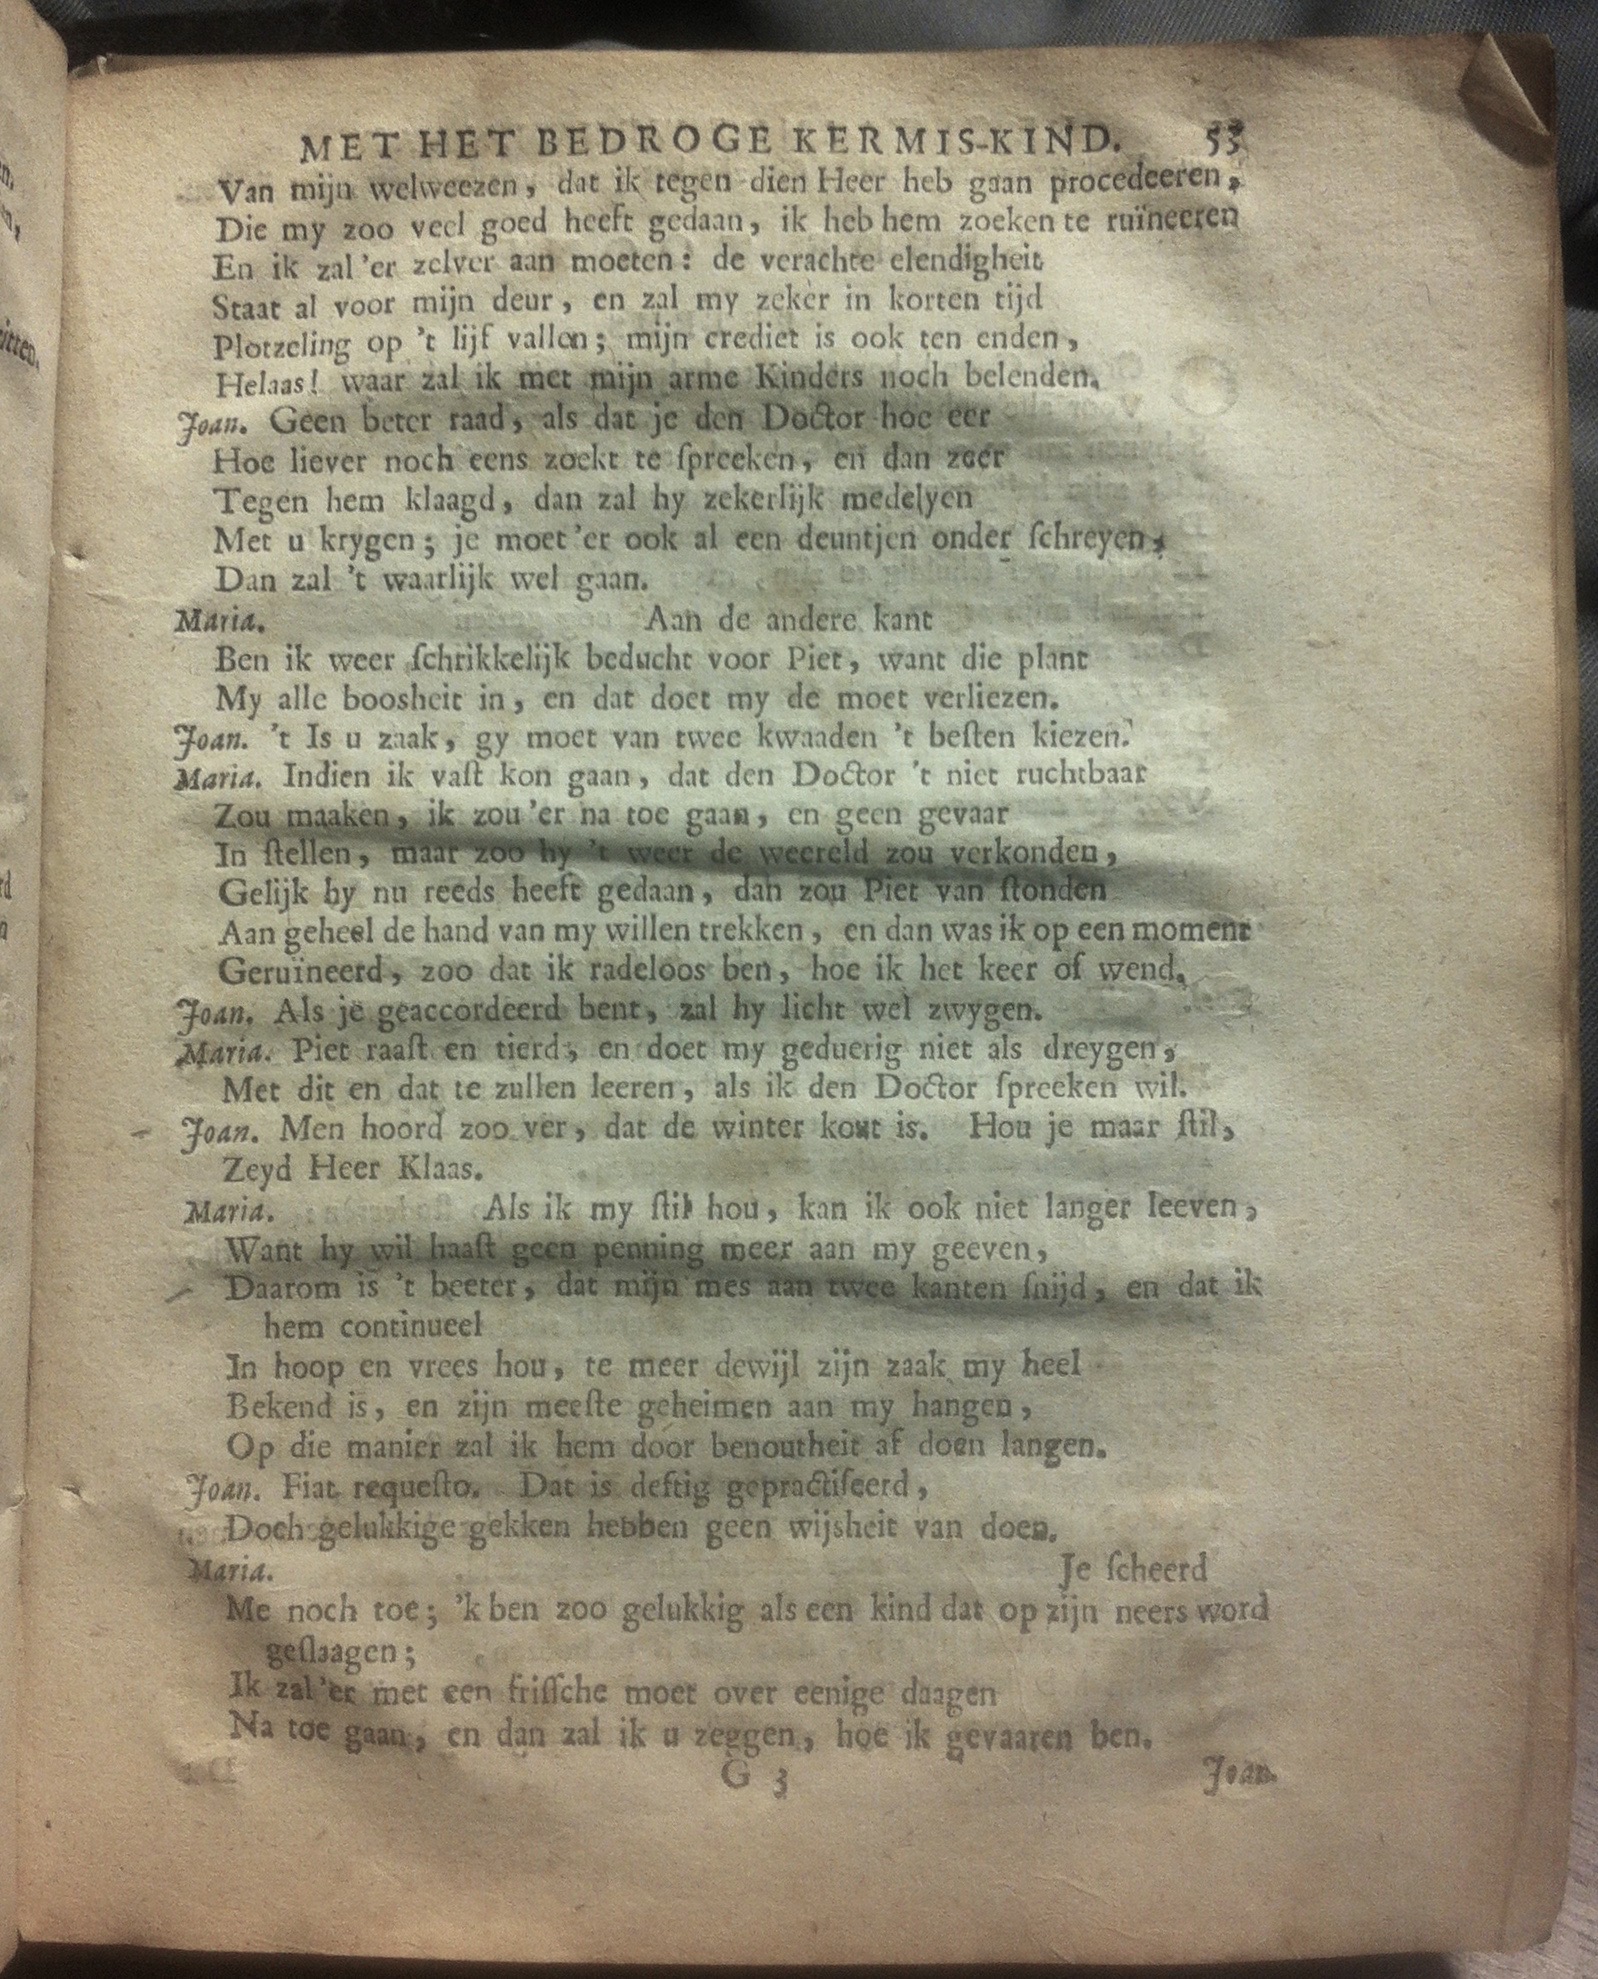 MET HET BEDROGE KERMIS-KIND. 53
Van mijn welweezen, dat ik tegen dien Heer heb gaan procedeeren,
Die my zoo veel goed heeft gedaan, ik heb hem zoeken te ruïneeren
En ik zal 'er zelver aan moeten: de verachte elendigheit
Staat al voor mijn deur, en zal my zeker in korten tijd
Plotzeling op 't lijf vallen; mijn crediet is ook ten enden,
Helaas! waar zal ik met mijn arme Kinders noch belenden.
Joan. Geen beter raad, als dat je den Doctor hoe eer
Hoe liever noch eens zoekt te ſpreeken, en dan zeer
Tegen hem klaagd, dan zal hy zekerlijk medelyen
Met u krygen; je moet 'er ook al een deuntjen onder ſchreyen,
Dan zal 't waarlijk wel gaan.
Maria. Aan de andere kant
Ben ik weer ſchrikkelijk beducht voor Piet, want die plant
My alle boosheit in, en dat doet my de moet verliezen.
Joan. 't Is u zaak, gy moet van twee kwaaden 't beſten kiezen.
Maria. Indien ik vaſt kon gaan, dat den Doctor 't niet ruchtbaar
Zou maaken, ik zou 'er na toe gaan, en geen gevaar
In ſtellen, maar zoo hy 't weer de weereld zou verkonden,
Gelijk hy nu reeds heeft gedaan, dan zou Piet van ſtonden
Aan geheel de hand van my willen trekken, en dan was ik op een moment
Geruïneerd, zoo dat ik radeloos ben, hoe ik het keer of wend.
Joan. Als je geaccordeerd bent, zal hy licht wel zwygen.
Maria. Piet raaſt en tierd, en doet my geduerig niet als dreygen,
Met dit en dat te zullen leeren, als ik den Doctor ſpreeken wil.
Joan. Men hoord zoo ver, dat de winter kout is. Hou je maar ſtil,
Zeyd Heer Klaas.
Maria. Als ik my ſtil hou, kan ik ook niet langer leeven,
Want hy wil haaſt geen penning meer aan my geeven,
Daarom is 't beeter, dat mijn mes aan twee kanten ſnijd, en dat ik
hem continueel
In hoop en vrees hou, te meer dewijl zijn zaak my heel
Bekend is, en zijn meeſte geheimen aan my hangen,
Op die manier zal ik hem door benoutheit af doen langen.
Joan. Fiat requeſto. Dat is deftig gepractiſeerd,
Doch gelukkige gekken hebben geen wijsheit van doen.
Maria. Je ſcheerd
Me noch toe; 'k ben zoo gelukkig als een kind dat op zijn neers word
geſlaagen;
Ik zal 'er met een friſſche moet over eenige daagen
Na toe gaan, en dan zal ik u zeggen, hoe ik gevaaren ben.
G 3 Joan.